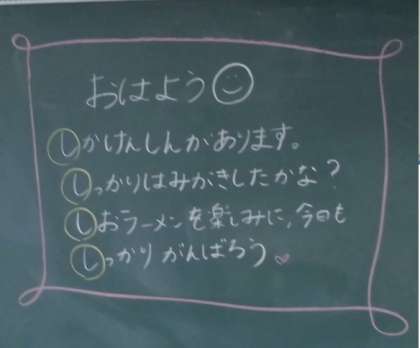 おはよう
しかけんしんがあります。
しっかりはみがきしたかな?
しおラーメンを楽しみに、今日も
しっかりがんばろう♡